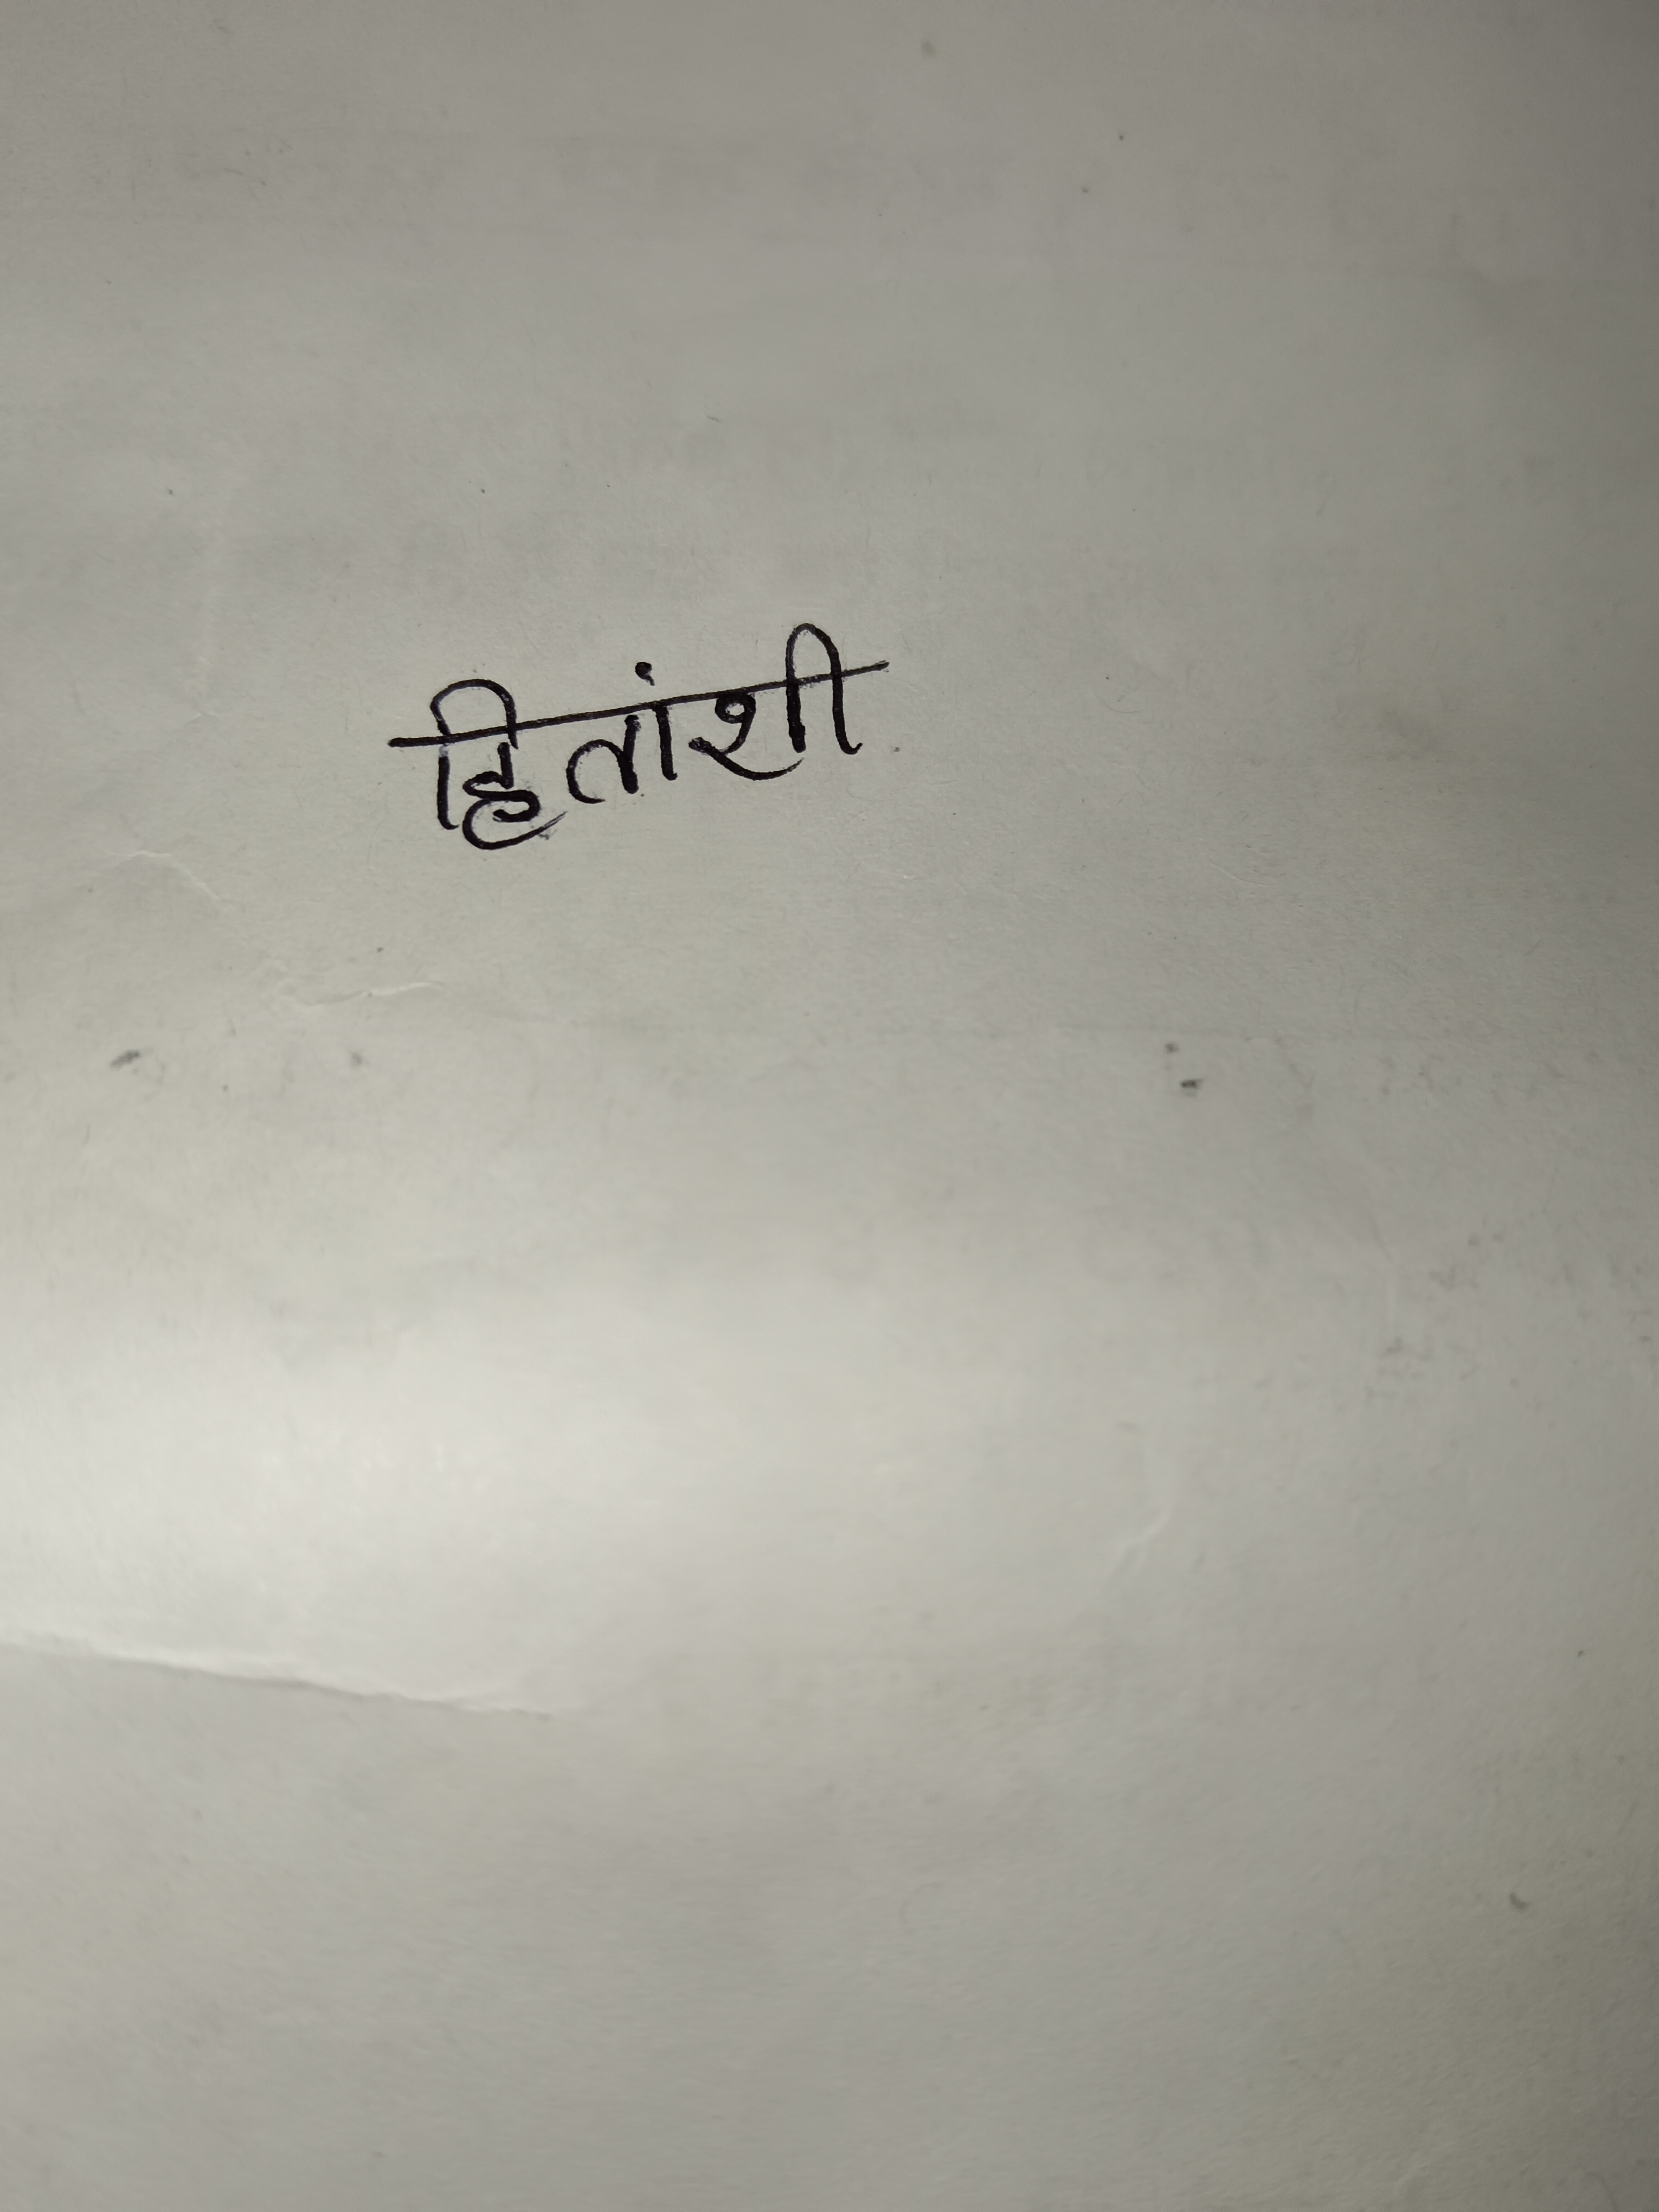 हितांशी